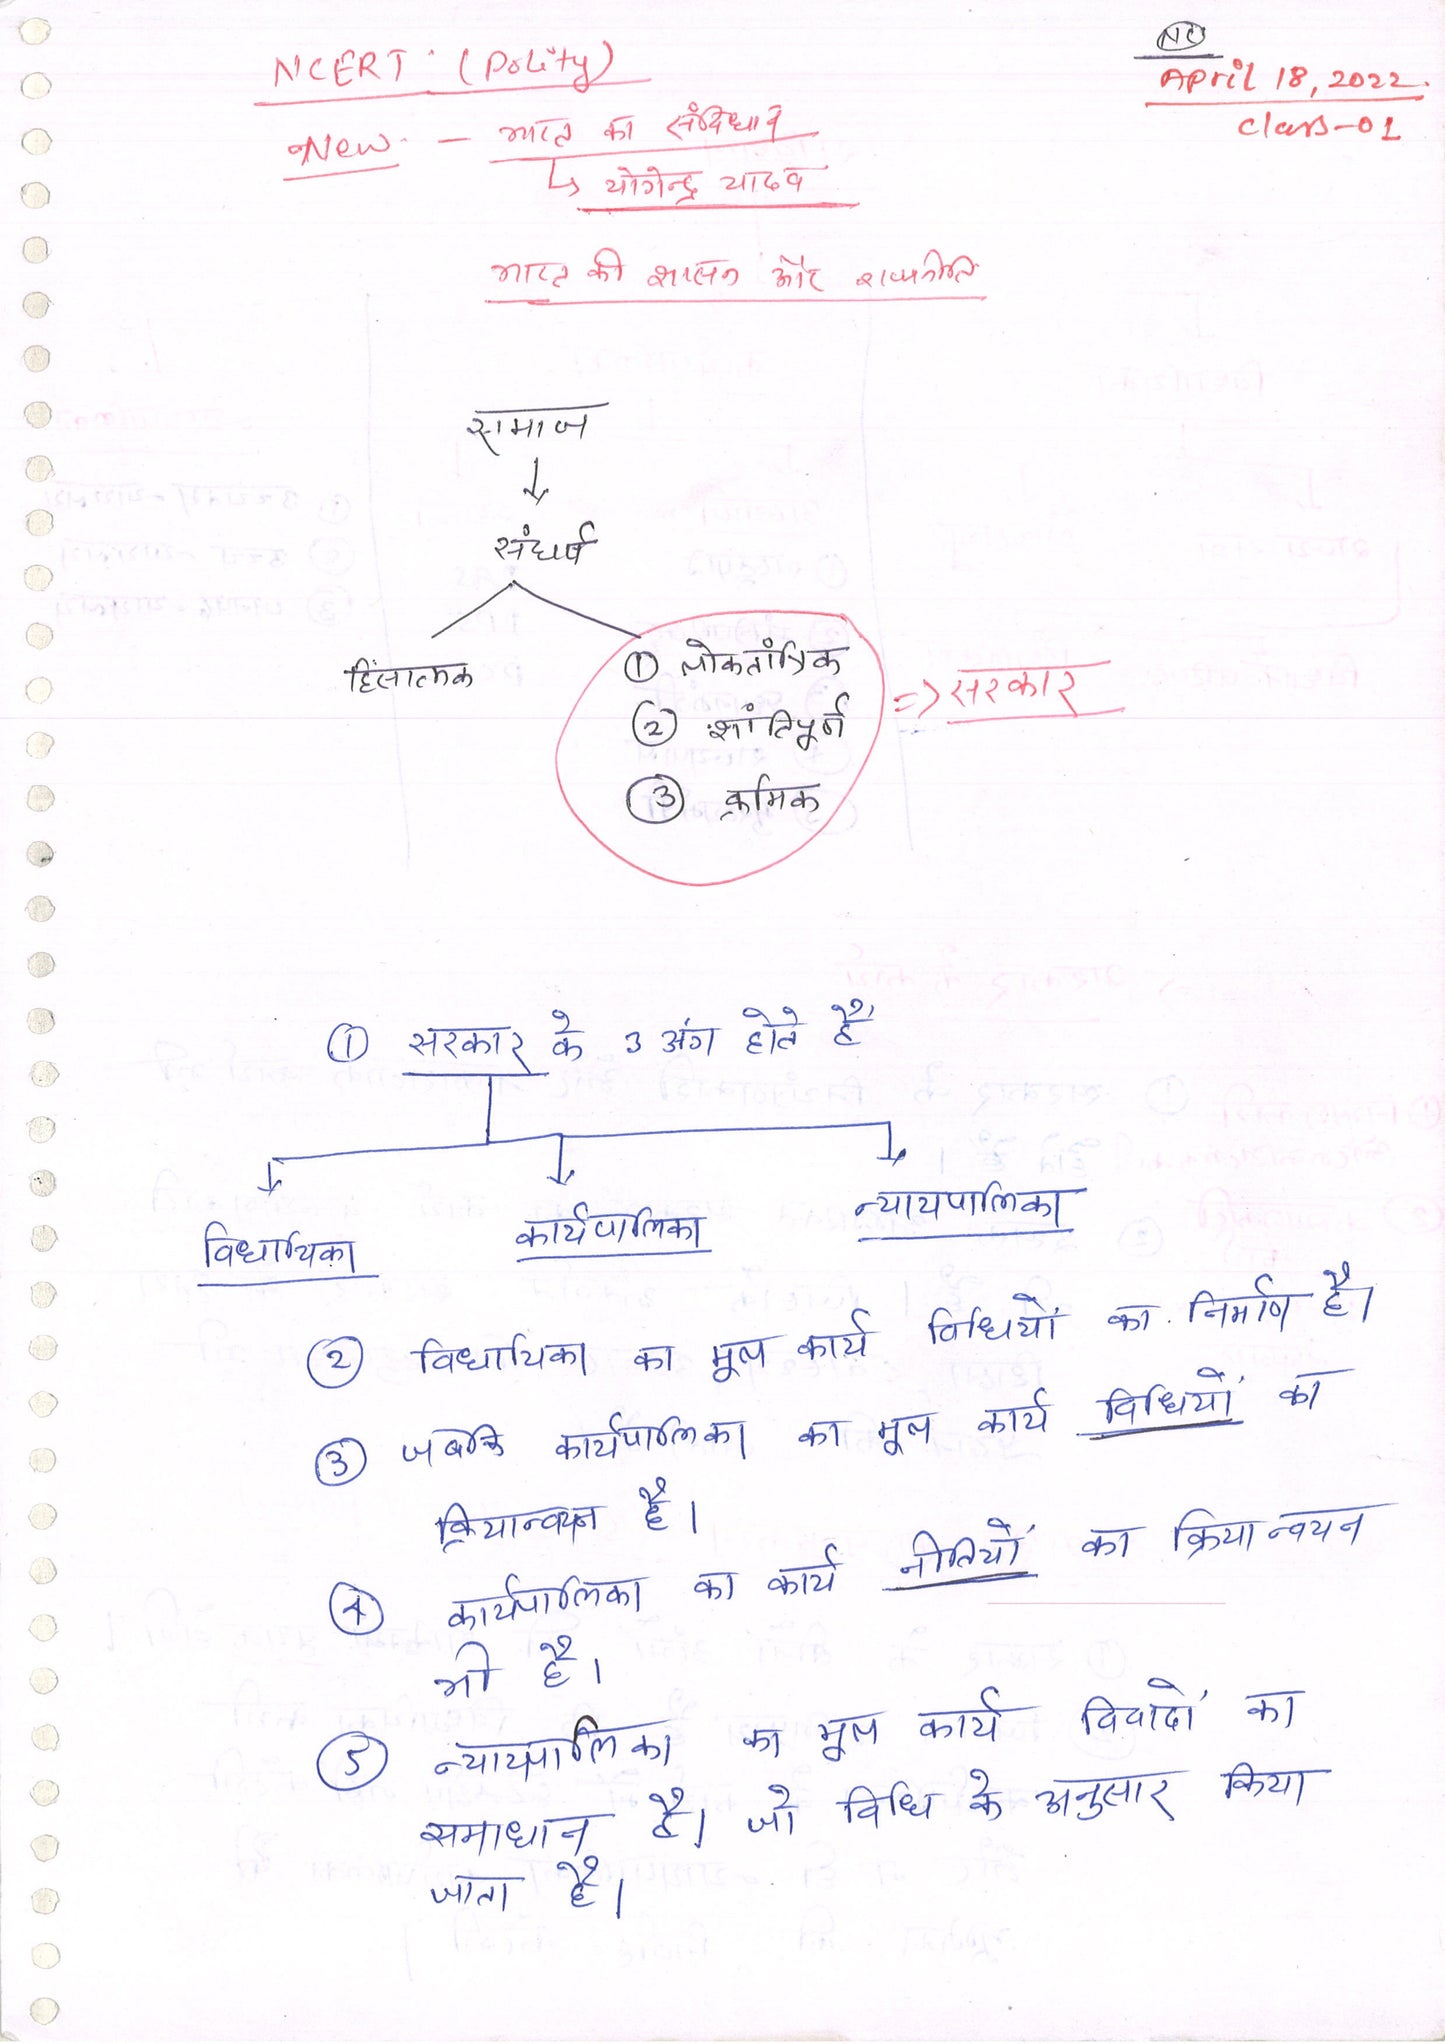 NC
NCERT (Polity)
April 18, 2022.
Class-01
New - भारत का संविधान
↳ योगेन्द्र यादव
भारत की शासन और राजनीति
समाज
↓
संघर्ष
हिंसात्मक
① लोकतांत्रिक
② शांतिपूर्ण
③ क्रमिक
=> सरकार
① सरकार के 3 अंग होते हैं
विधायिका
कार्यपालिका
न्यायपालिका
② विधायिका का मूल कार्य विधियों का निर्माण है।
③ जबकि कार्यपालिका का मूल कार्य विधियों का
क्रियान्वयन है।
④ कार्यपालिका का कार्य नीतियों का क्रियान्वयन
भी है।
⑤ न्यायपालिका का मूल कार्य विवादों का
समाधान है। जो विधि के अनुसार किया
जाता है।